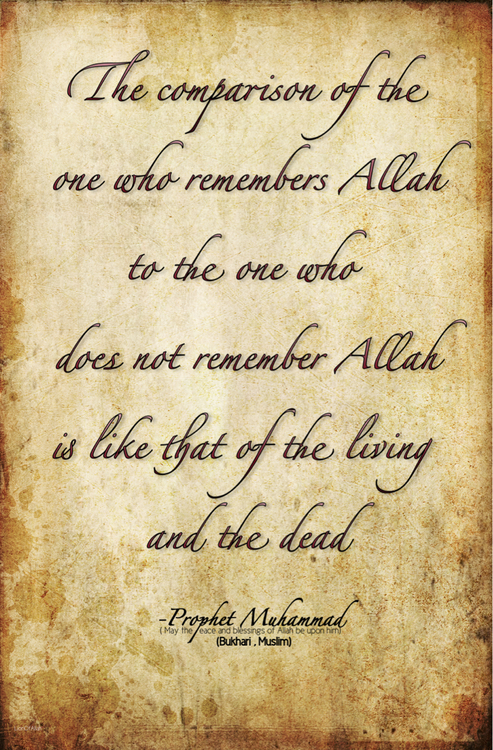 The comparison of the
one who remembers Allah
to the one who
does not remember Allah
is like that of the living
and the dead
-Prophet Muhammad
( May the Peace and blessings of Allah be upon him)
(Bukhari , Muslim)